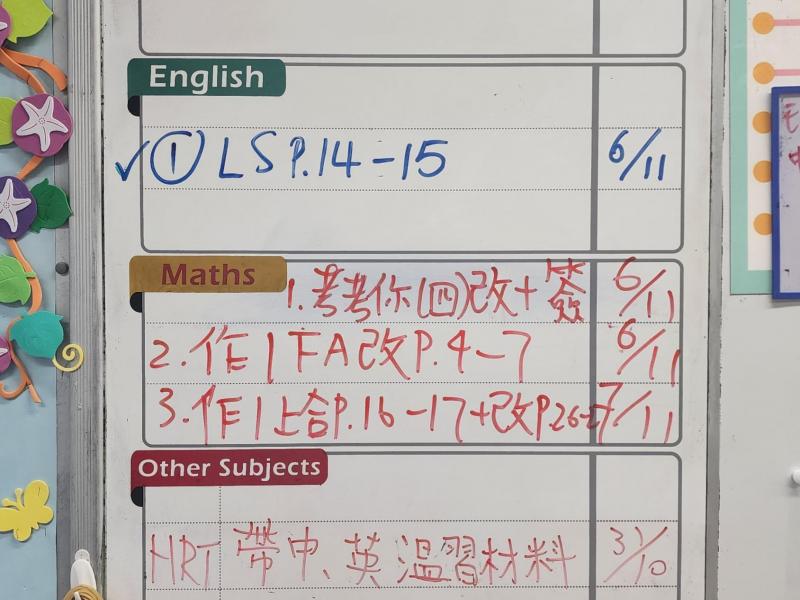 English
✓ ① LS P.14-15 6/11
Maths
1. 考考你(四)改+簽 6/11
2. 作1下A改P.4-7 6/11
3. 作1上合P.16-17+改P.26-27 7/11
Other Subjects
HRT 帶中、英溫習材料 31/10